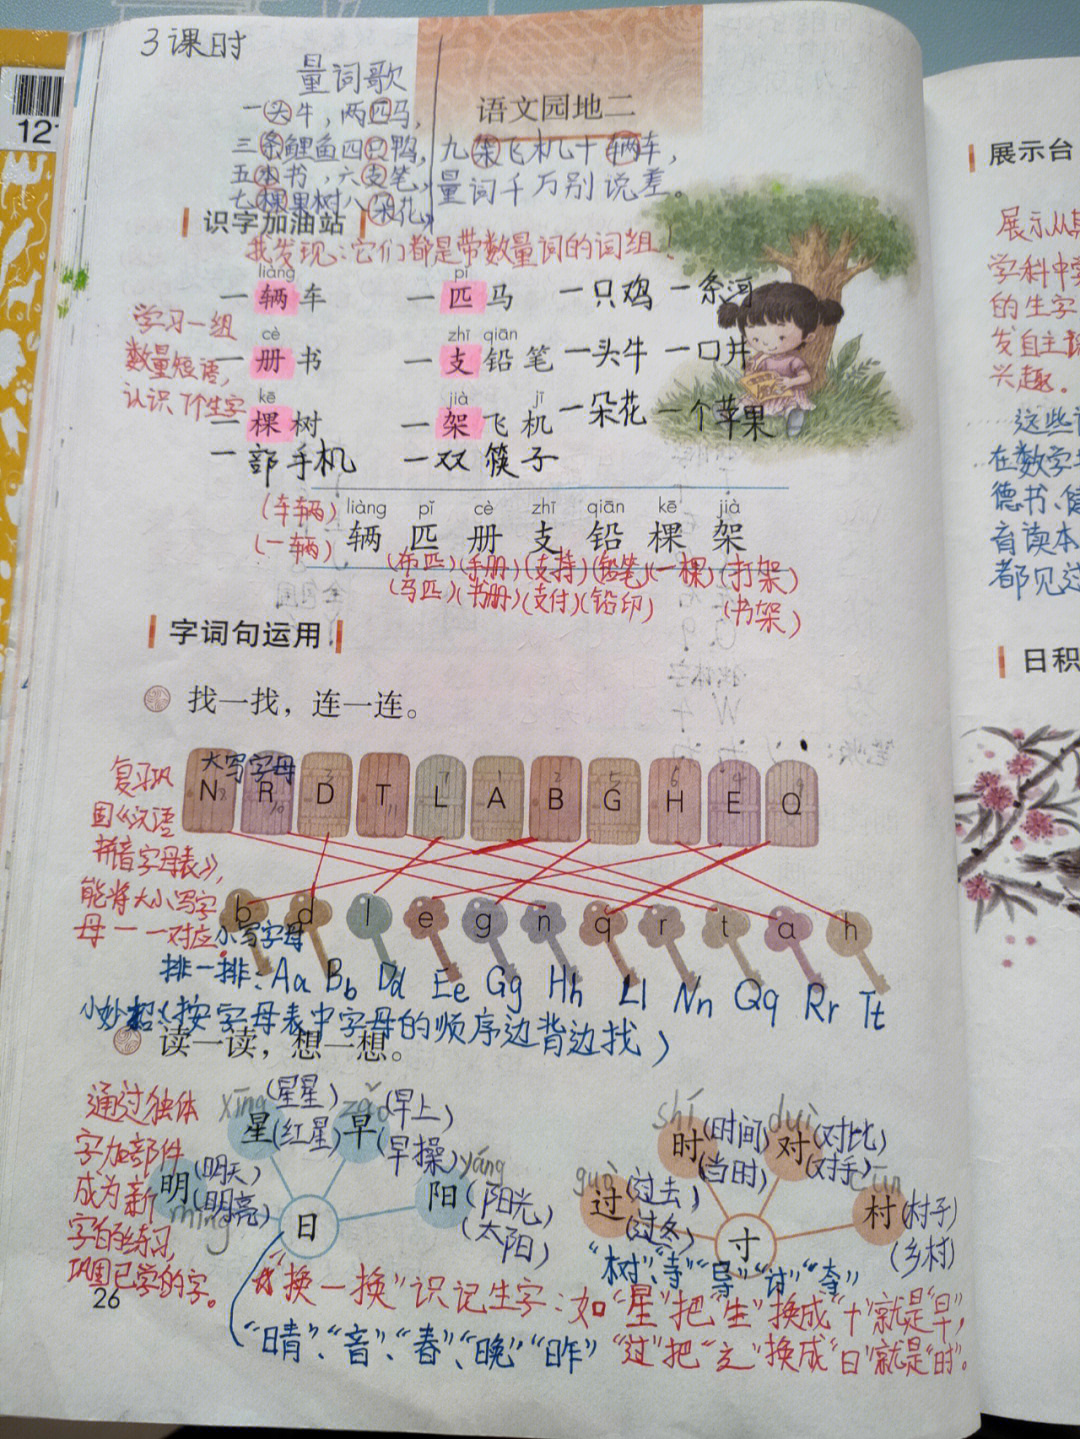 3课时
量词歌
一头牛，两匹马，
三条鲤鱼四只鸭，
五本书，六支笔，
七棵果树八朵花，
九架飞机十辆车，
量词千万别说差。
语文园地二
12
识字加油站
我发现：它们都是带数量词的词组！
liàng pǐ
一辆车 一匹马 一只鸡 一条河
cè zhī qiān
一册书 一支铅笔 一头牛 一口井
kē jià jī
一棵树 一架飞机 一朵花 一个苹果
一部手机 一双筷子
学习一组
数量短语，
认识7个生字
liàng pǐ cè zhī qiān kē jià
辆 匹 册 支 铅 棵 架
(车辆)
(一辆)
(布匹)(手册)(支持)(铅笔)(一棵)(打架)
(马匹)(书册)(支付)(铅印) (书架)
字词句运用
找一找，连一连。
大写字母
N R D T L A B G H E Q
8 10 3 11 7 1 2 5 6 4 9
复习巩
固《汉语
拼音字母表》，
能将大小写字
母一一对应。
b d l e g n q r t a h
小写字母
排一排：Aa Bb Dd Ee Gg Hh Ll Nn Qq Rr Tt
小妙招(按字母表中字母的顺序边背边找)
读一读，想一想。
通过独体
字加部件
成为新
字的练习，
巩固已学的字。
xīng zǎo
星(星星)(红星) 早(早上)(早操)
míng yáng
明(明天)(明亮) 阳(阳光)(太阳)
日
shí duì
时(时间)(当时) 对(对比)(对手)
guò cūn
过(过去)(过冬) 村(村子)(乡村)
寸
“树”“寺”“导”“讨”“夺”
“换一换”识记生字：如“星”把“生”换成“十”就是“早”，
“晴”、“音”、“春”、“晚”“昨”
“过”把“辶”换成“日”就是“时”。
26
展示台
学科中
的生字
发自主
兴趣。
在数学
都见过
日积